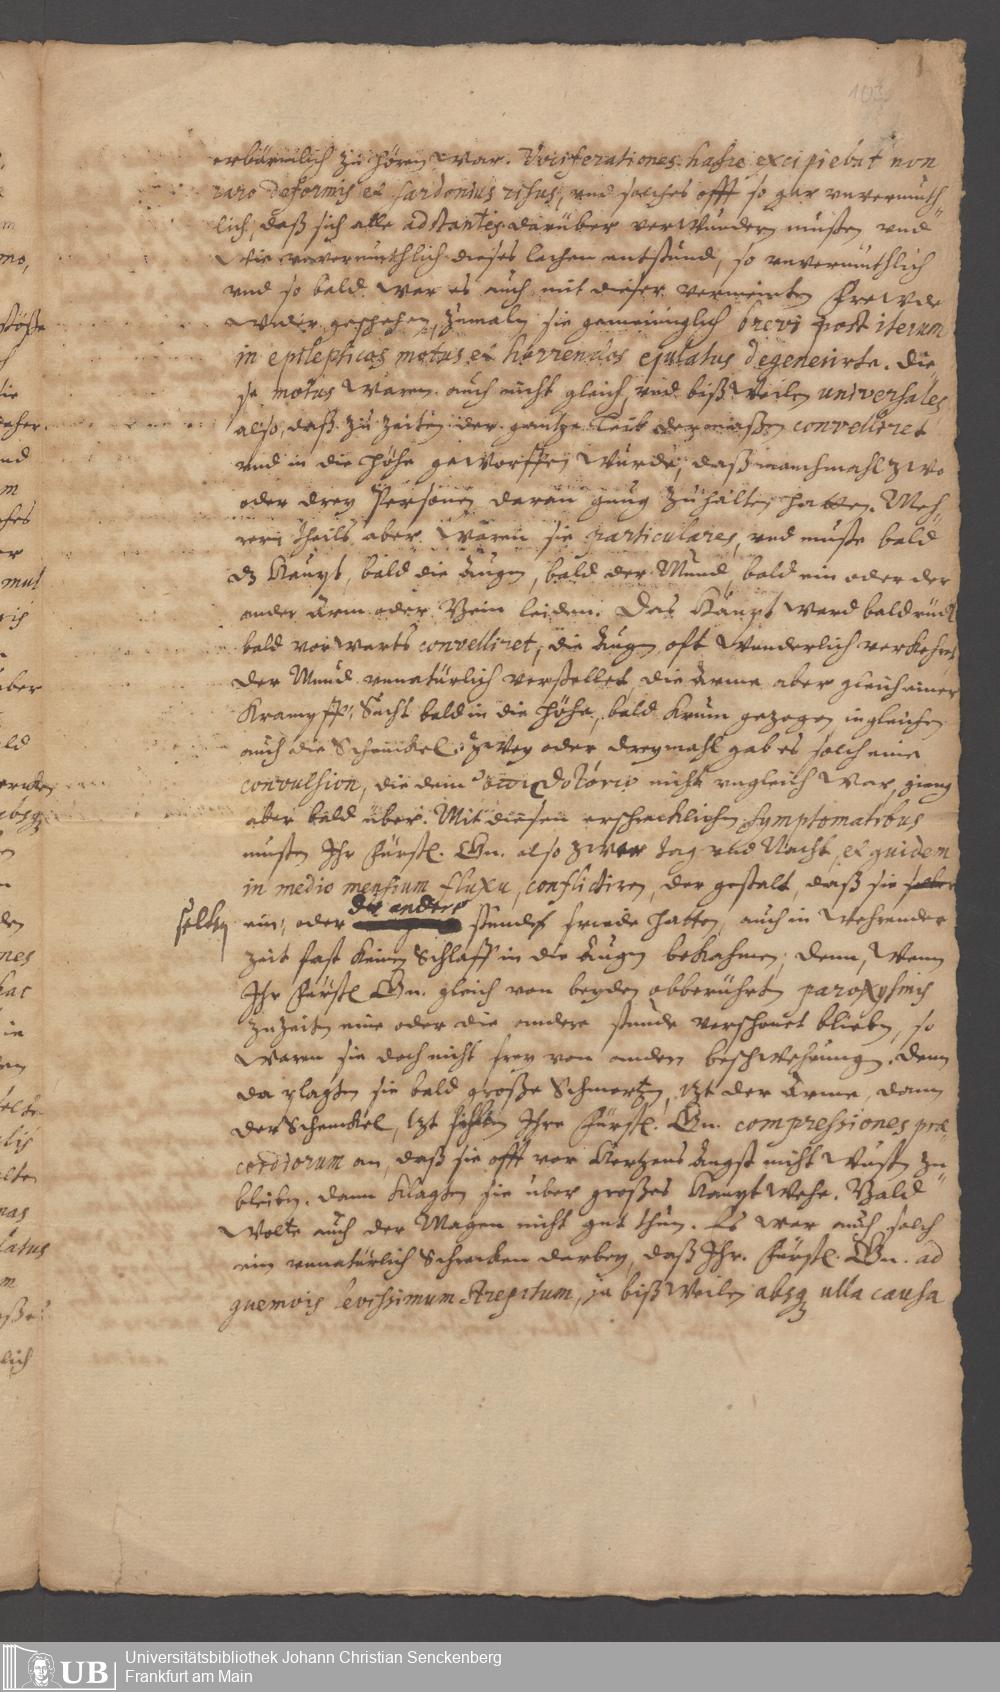 103
erbärmlich zu hören war. Vociferationes hasce excipiebat non
raro deformis et sardonius risus, und solches offt so gar unvermuth-
lich, daß sich alle adstantes darüber verwundern mußen, und
wie unvermuthlich dieses lachen entstund, so unvermuthlich
und so bald war es auch mit dieser vermeinten Frewde
wider geschehen, zumaln sie gemeiniglich brevi post iterum
in epilepticos motus et horrendos ejulatus degenerirte. Die-
se motus waren auch nicht gleich, und bißweilen universales
also, daß zu zeiten der gantze Leib dermaßen convelliret
und in die höhe geworffen wurde, daß manchmahl zwo
oder drey Personen daran gnug zu halten hatten. Meh-
rern theils aber waren sie particulares, und muste bald
dz Haupt, bald die Augen, bald der Mund, bald ein oder der
ander Arm oder Bein leiden. Das Haupt ward bald rück
bald vorwarts convelliret, die Augen oft wunderlich verkehret
der Mund unnatürlich verstellet, die Arme aber gleich einer
Krampff Sucht bald in die höhe, bald krum gezogen ingleichen
auch die Schenckel. Zwey oder dreymahl gab es solch eine
convulsion, die dem nicht ungleich war, gieng
aber bald über. Mit diesen erschrecklichen Symptomatibus
musten Ihr Fürstl. Gn. also zwar tag und Nacht, et quidem
in medio mensium fluxu, conflictiren, der gestalt, daß sie
selten ein, oder die andere stunde friede hatten, auch in wehrender
zeit fast keinen Schlaff in die Augen bekahmen, denn, wenn
Ihr Fürstl Gn. gleich von beyden obberührten paroxysmis
zu zeiten eine oder die andere stunde verschonet blieben, so
waren sie doch nicht frey von andern beschwehrungen. Denn
da plagten sie bald große Schmertzen, itzt der Arme, dann
der Schenckel, itzt Ihre Fürstl. Gn. compressiones præ-
cordiorum an, daß sie offt vor Hertzens Angst nicht wusten zu
bleiben. Dann klagten sie über großes Hauptwehe. Bald
wolte auch der Magen nicht gut thun. Es war auch solch
ein unnatürlich Schrecken darbey, daß Ihr. Fürstl. Gn. ad
quemvis levissimum strepitum, ja bißweilen absq ulla causa
Universitätsbibliothek Johann Christian Senckenberg
Frankfurt am Main
UB